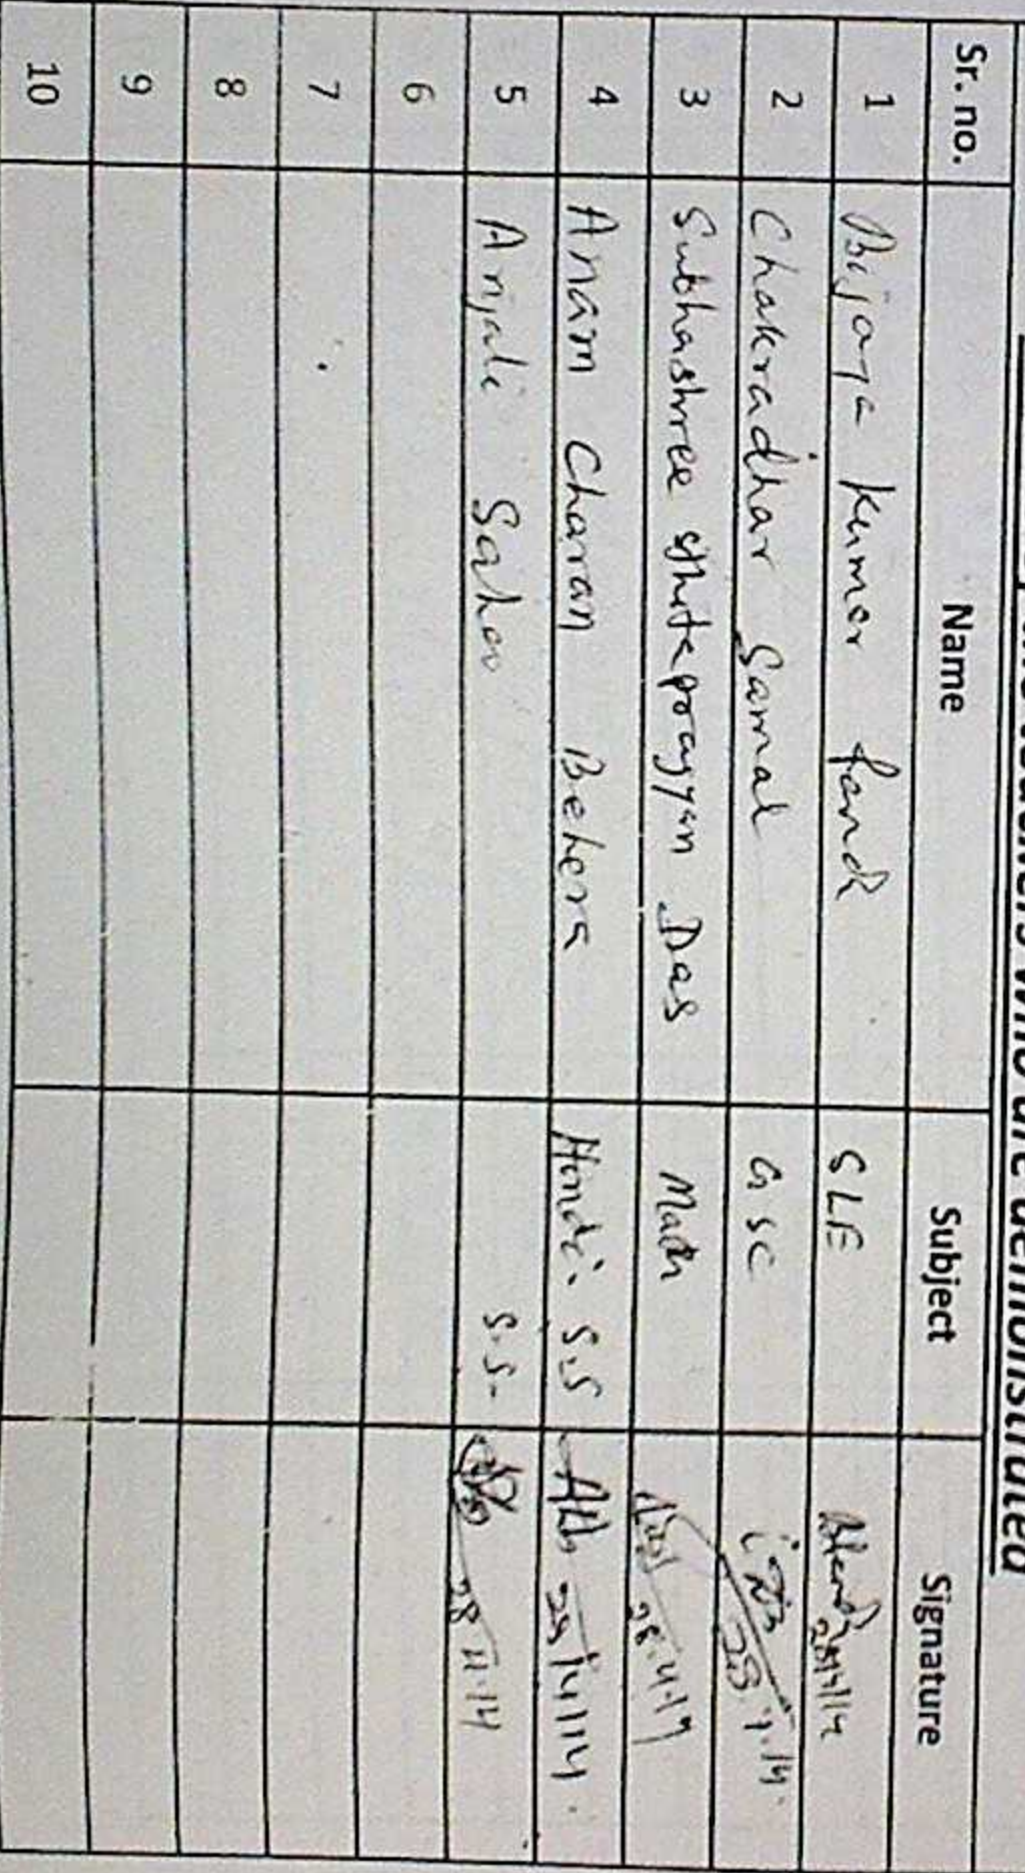 teachers who are demonstrated
Sr. no. Name Subject Signature
1 Bijaya Kumar Panda SLE
2 Chakradhar Samal GSC 28.4.14.
3 Subhashree sthitapragyan Das Math 28.4.14
4 Anam Charan Behera Hindi. S.S 28/4/14.
5 Anjali Sahoo S.S. 28.4.14
6
7
8
9
10